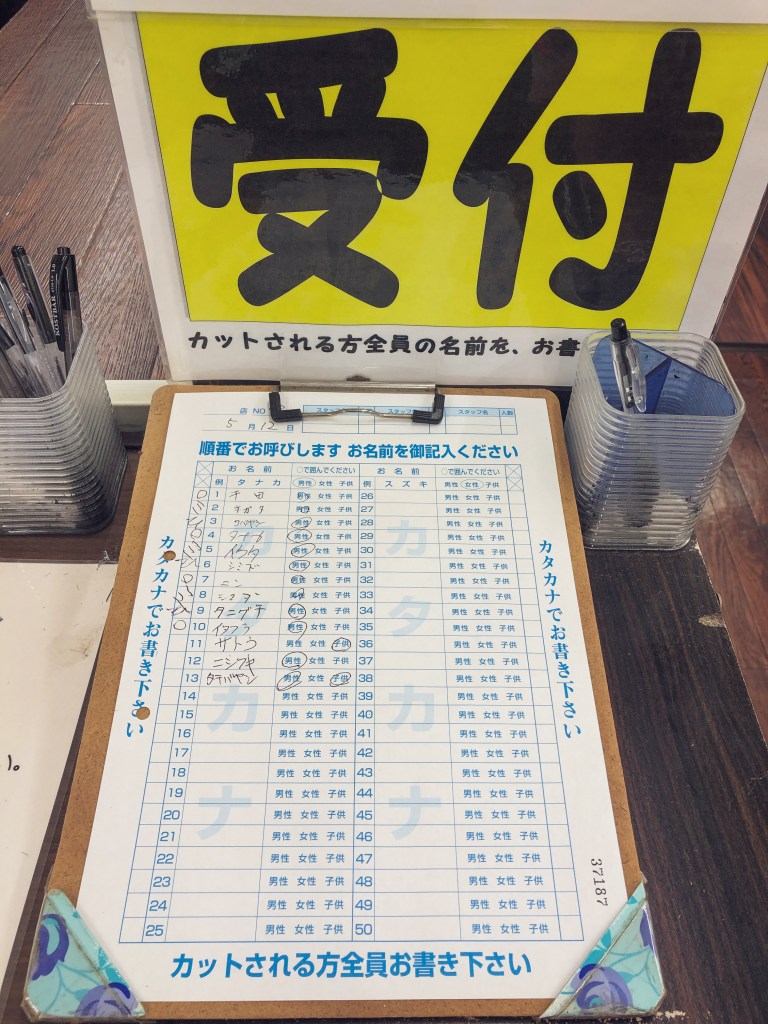 受付
カットされる方全員の名前を、お書
店 NO
スタッフ名 人数
5月12日
順番でお呼びします お名前を御記入ください
お名前 ○で囲んでください お名前 ○で囲んでください
例 タナカ 男性 女性 子供 例 スズキ 男性 女性 子供
1 千田 男性 女性 子供 26 男性 女性 子供
2 男性 女性 子供 27 男性 女性 子供
3 男性 女性 子供 28 男性 女性 子供
4 タナブ 男性 女性 子供 29 男性 女性 子供
5 イクタ 男性 女性 子供 30 男性 女性 子供
6 シミズ 男性 女性 子供 31 男性 女性 子供
7 ニン 男性 女性 子供 32 男性 女性 子供
8 男性 女性 子供 33 男性 女性 子供
9 タニグチ 男性 女性 子供 34 男性 女性 子供
10 イタクラ 男性 女性 子供 35 男性 女性 子供
11 サトウ 男性 女性 子供 36 男性 女性 子供
12 男性 女性 子供 37 男性 女性 子供
13 タチバヤシ 男性 女性 子供 38 男性 女性 子供
14 男性 女性 子供 39 男性 女性 子供
15 男性 女性 子供 40 男性 女性 子供
16 男性 女性 子供 41 男性 女性 子供
17 男性 女性 子供 42 男性 女性 子供
18 男性 女性 子供 43 男性 女性 子供
19 男性 女性 子供 44 男性 女性 子供
20 男性 女性 子供 45 男性 女性 子供
21 男性 女性 子供 46 男性 女性 子供
22 男性 女性 子供 47 男性 女性 子供
23 男性 女性 子供 48 男性 女性 子供
24 男性 女性 子供 49 男性 女性 子供
25 男性 女性 子供 50 男性 女性 子供
カタカナ
カタカナ
カタカナでお書き下さい
カタカナでお書き下さい
37187
カットされる方全員お書き下さい